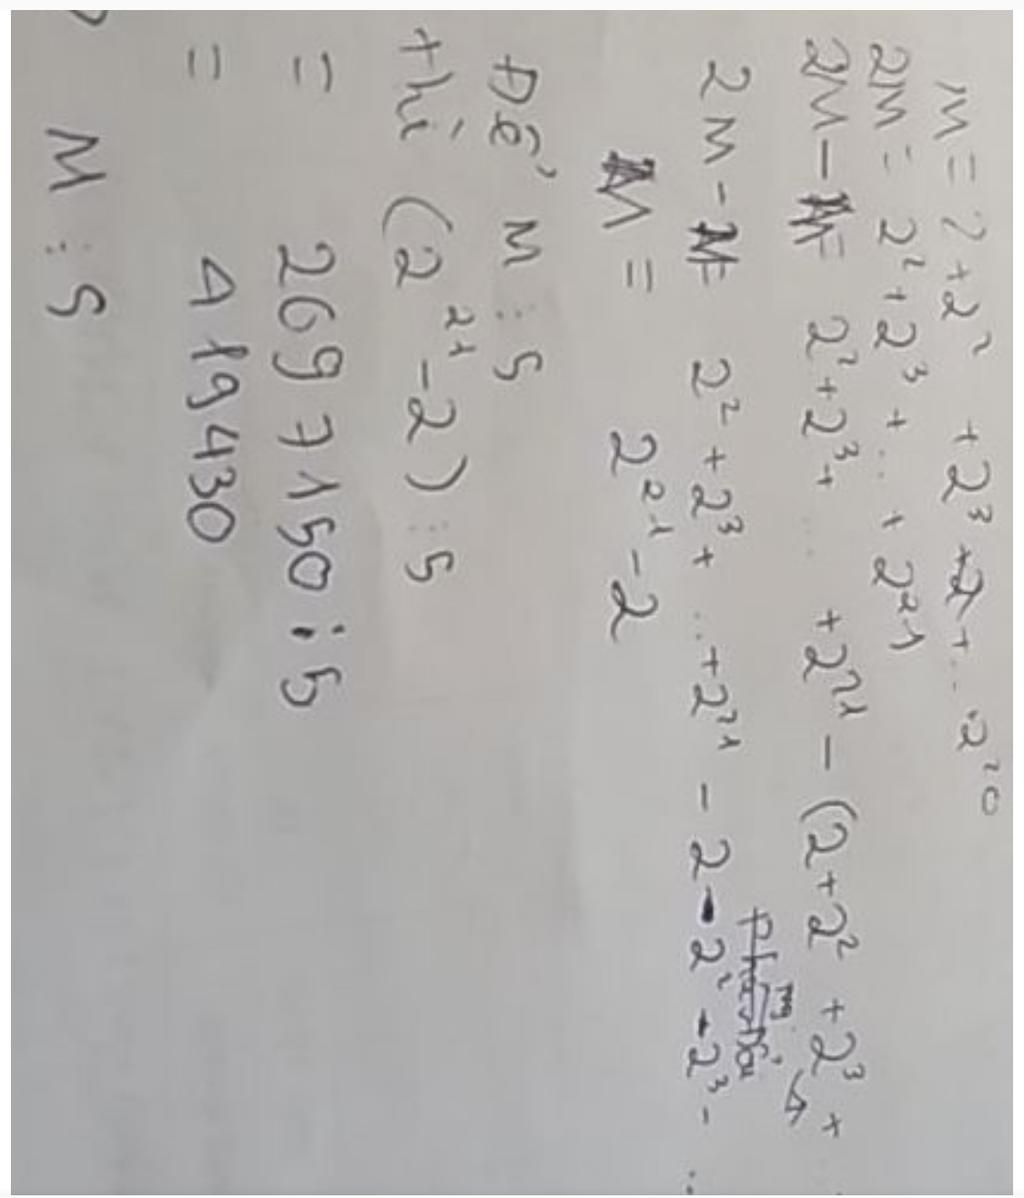 M = 2 + 2² + 2³ + 2 + ... 2²⁰
2M = 2² + 2³ + ... + 2²¹
2M - M = 2² + 2³ + ... + 2²¹ - (2 + 2² + 2³ +
2M - M = 2² + 2³ + ... + 2²¹ - 2 - 2² - 2³ - ...
M = 2²¹ - 2
Để M ⋮ 5
thì (2²¹ - 2) ⋮ 5
= 2697150 : 5
= 419430
M ⋮ 5